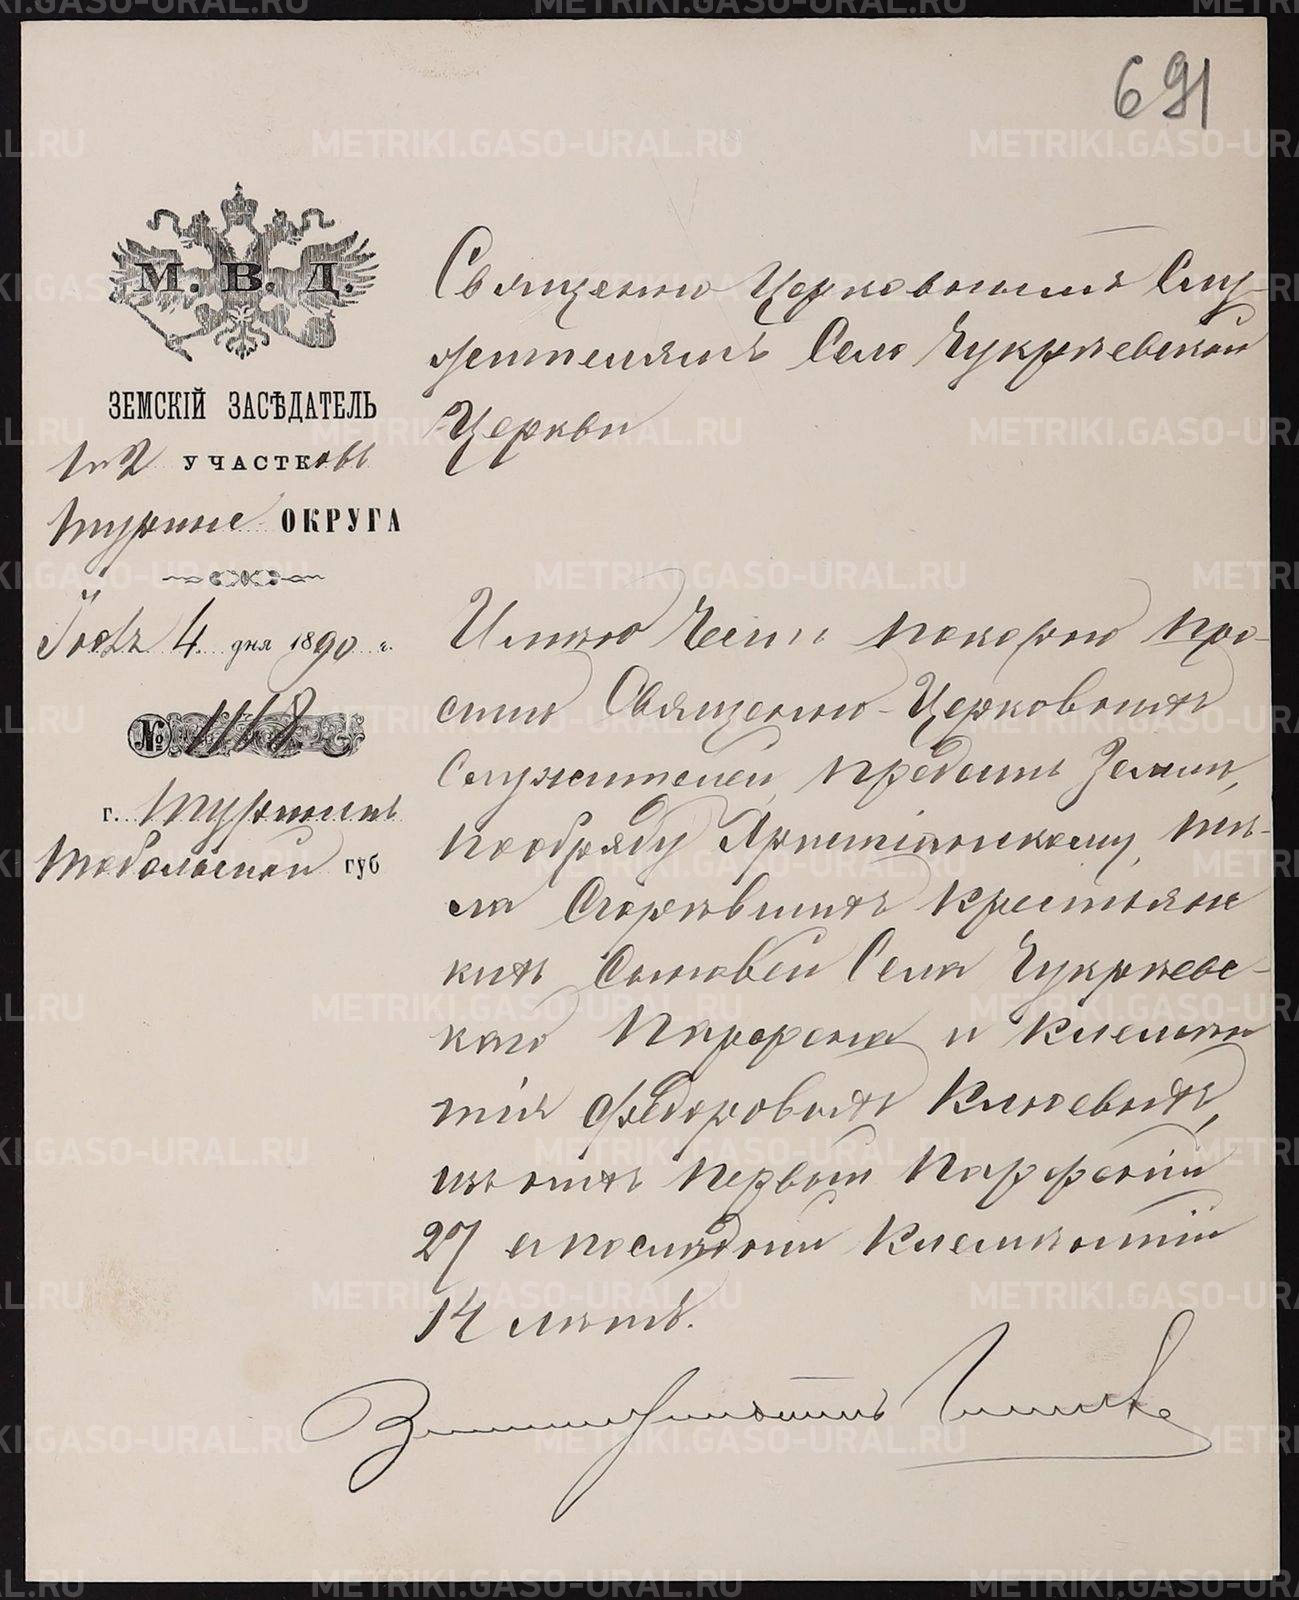 691
М. В. Д.
ЗЕМСКІЙ ЗАСѢДАТЕЛЬ
1 и 2 УЧАСТКовъ
Туринс ОКРУГА
4 дня 1890 г.
№ 1168
г. Туринскъ
Тобольской губ
Священно Церковнымъ Слу-
жителямъ Села Чукрѣевской
Церкви
Имѣю честь покорно про-
сить Священно-Церковныхъ
Служителей, предать Земли,
по обряду Христіанскому, тѣ-
ла Сгорѣвшихъ крестьянс
кихъ Сыновей Села Чукрѣевс-
каго Парфена и Клеман
тія Ѳедоровыхъ Клюевыхъ,
изъ нихъ первый Парфеній
27 а послѣдній Клемантій
14 лѣтъ.
METRIKI.GASO-URAL.RU